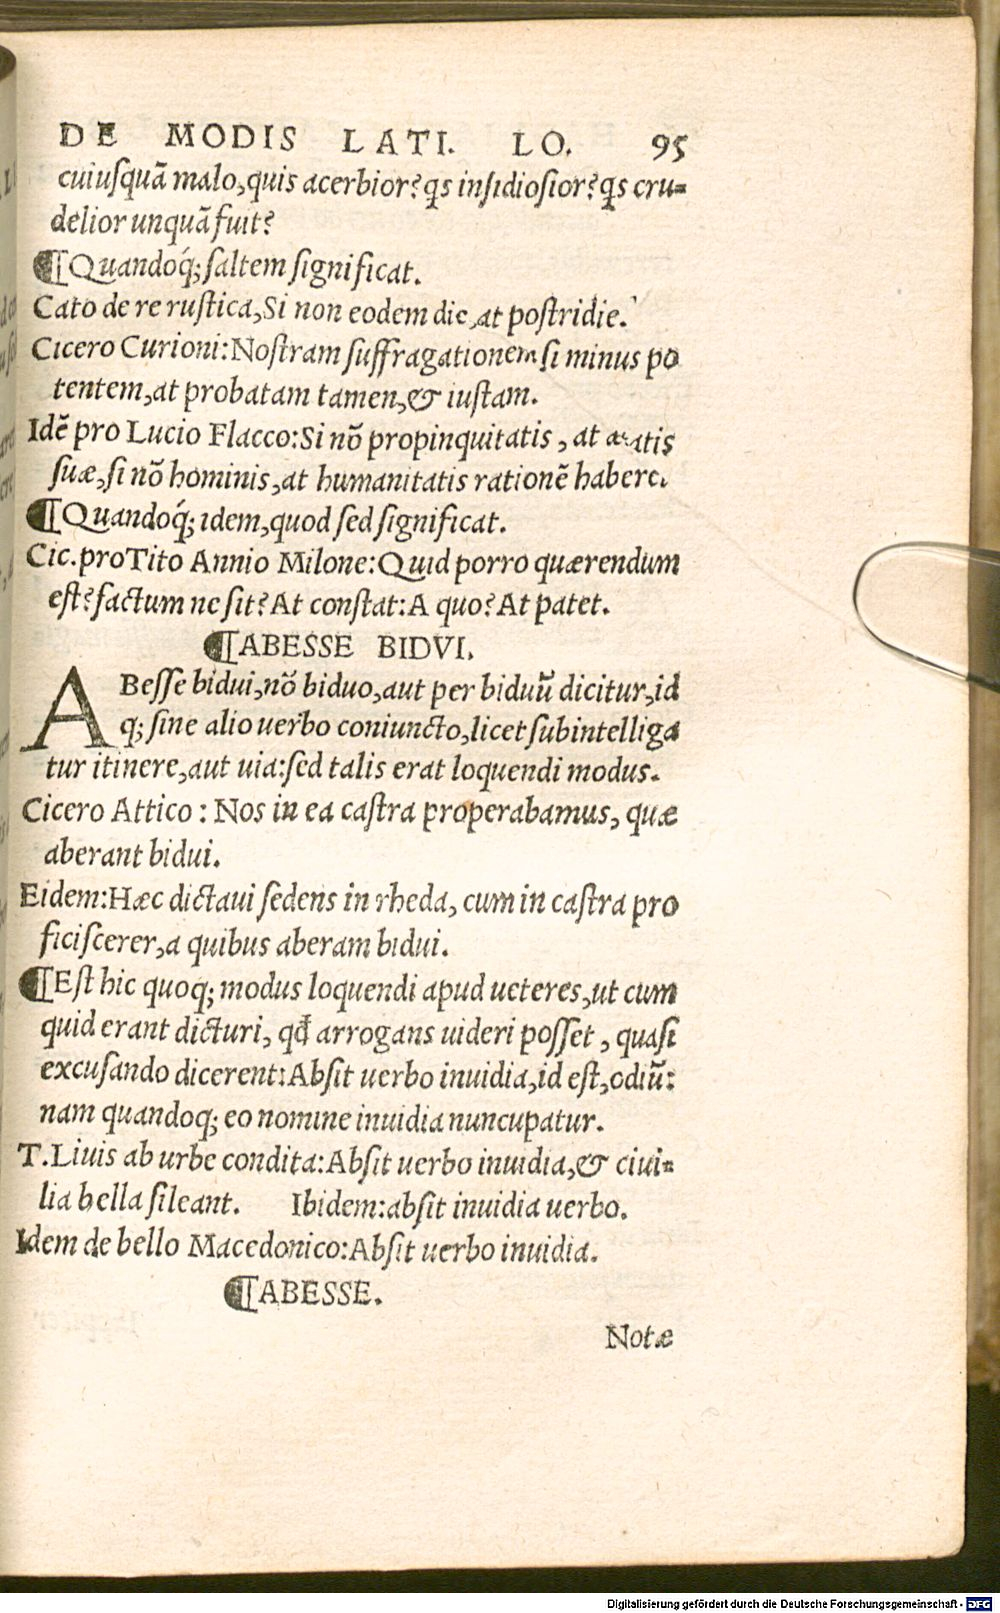 DE MODIS LATI. LO. 95
cuiuſquā malo,quis acerbior?qs inſidioſior?qs cru⸗
delior unquā fuit?
¶Quandoq́; ſaltem ſignificat.
Cato de re ruſtica,Si non eodem die,at poſtridie.
Cicero Curioni:Noſtram ſuffragationem ſi minus po
tentem,at probatam tamen,& iuſtam.
Idē pro Lucio Flacco:Si nō propinquitatis, at ætatis
ſuæ,ſi nō hominis,at humanitatis rationē habere.
¶Quandoq́; idem,quod ſed ſignificat.
Cic.pro Tito Annio Milone:Quid porro quærendum
eſt?factum ne ſit?At conſtat:A quo?At patet.
¶ABESSE BIDVI.
ABeſſe bidui,nō biduo,aut per biduū dicitur,id
q; ſine alio uerbo coniuncto,licet ſubintelliga
tur itinere,aut uia:ſed talis erat loquendi modus.
Cicero Attico: Nos in ea caſtra properabamus, quæ
aberant bidui.
Eidem:Hæc dictaui ſedens in rheda, cum in caſtra pro
ficiſcerer,a quibus aberam bidui.
¶Eſt hic quoq; modus loquendi apud ueteres,ut cum
quid erant dicturi, qđ arrogans uideri poſſet, quaſi
excuſando dicerent:Abſit uerbo inuidia,id eſt,odiū:
nam quandoq; eo nomine inuidia nuncupatur.
T.Liuis ab urbe condita:Abſit uerbo inuidia,& ciui⸗
lia bella ſileant. Ibidem:abſit inuidia uerbo.
Idem de bello Macedonico:Abſit uerbo inuidia.
¶ABESSE.
Notæ
Digitalisierung gefördert durch die Deutsche Forschungsgemeinschaft - DFG